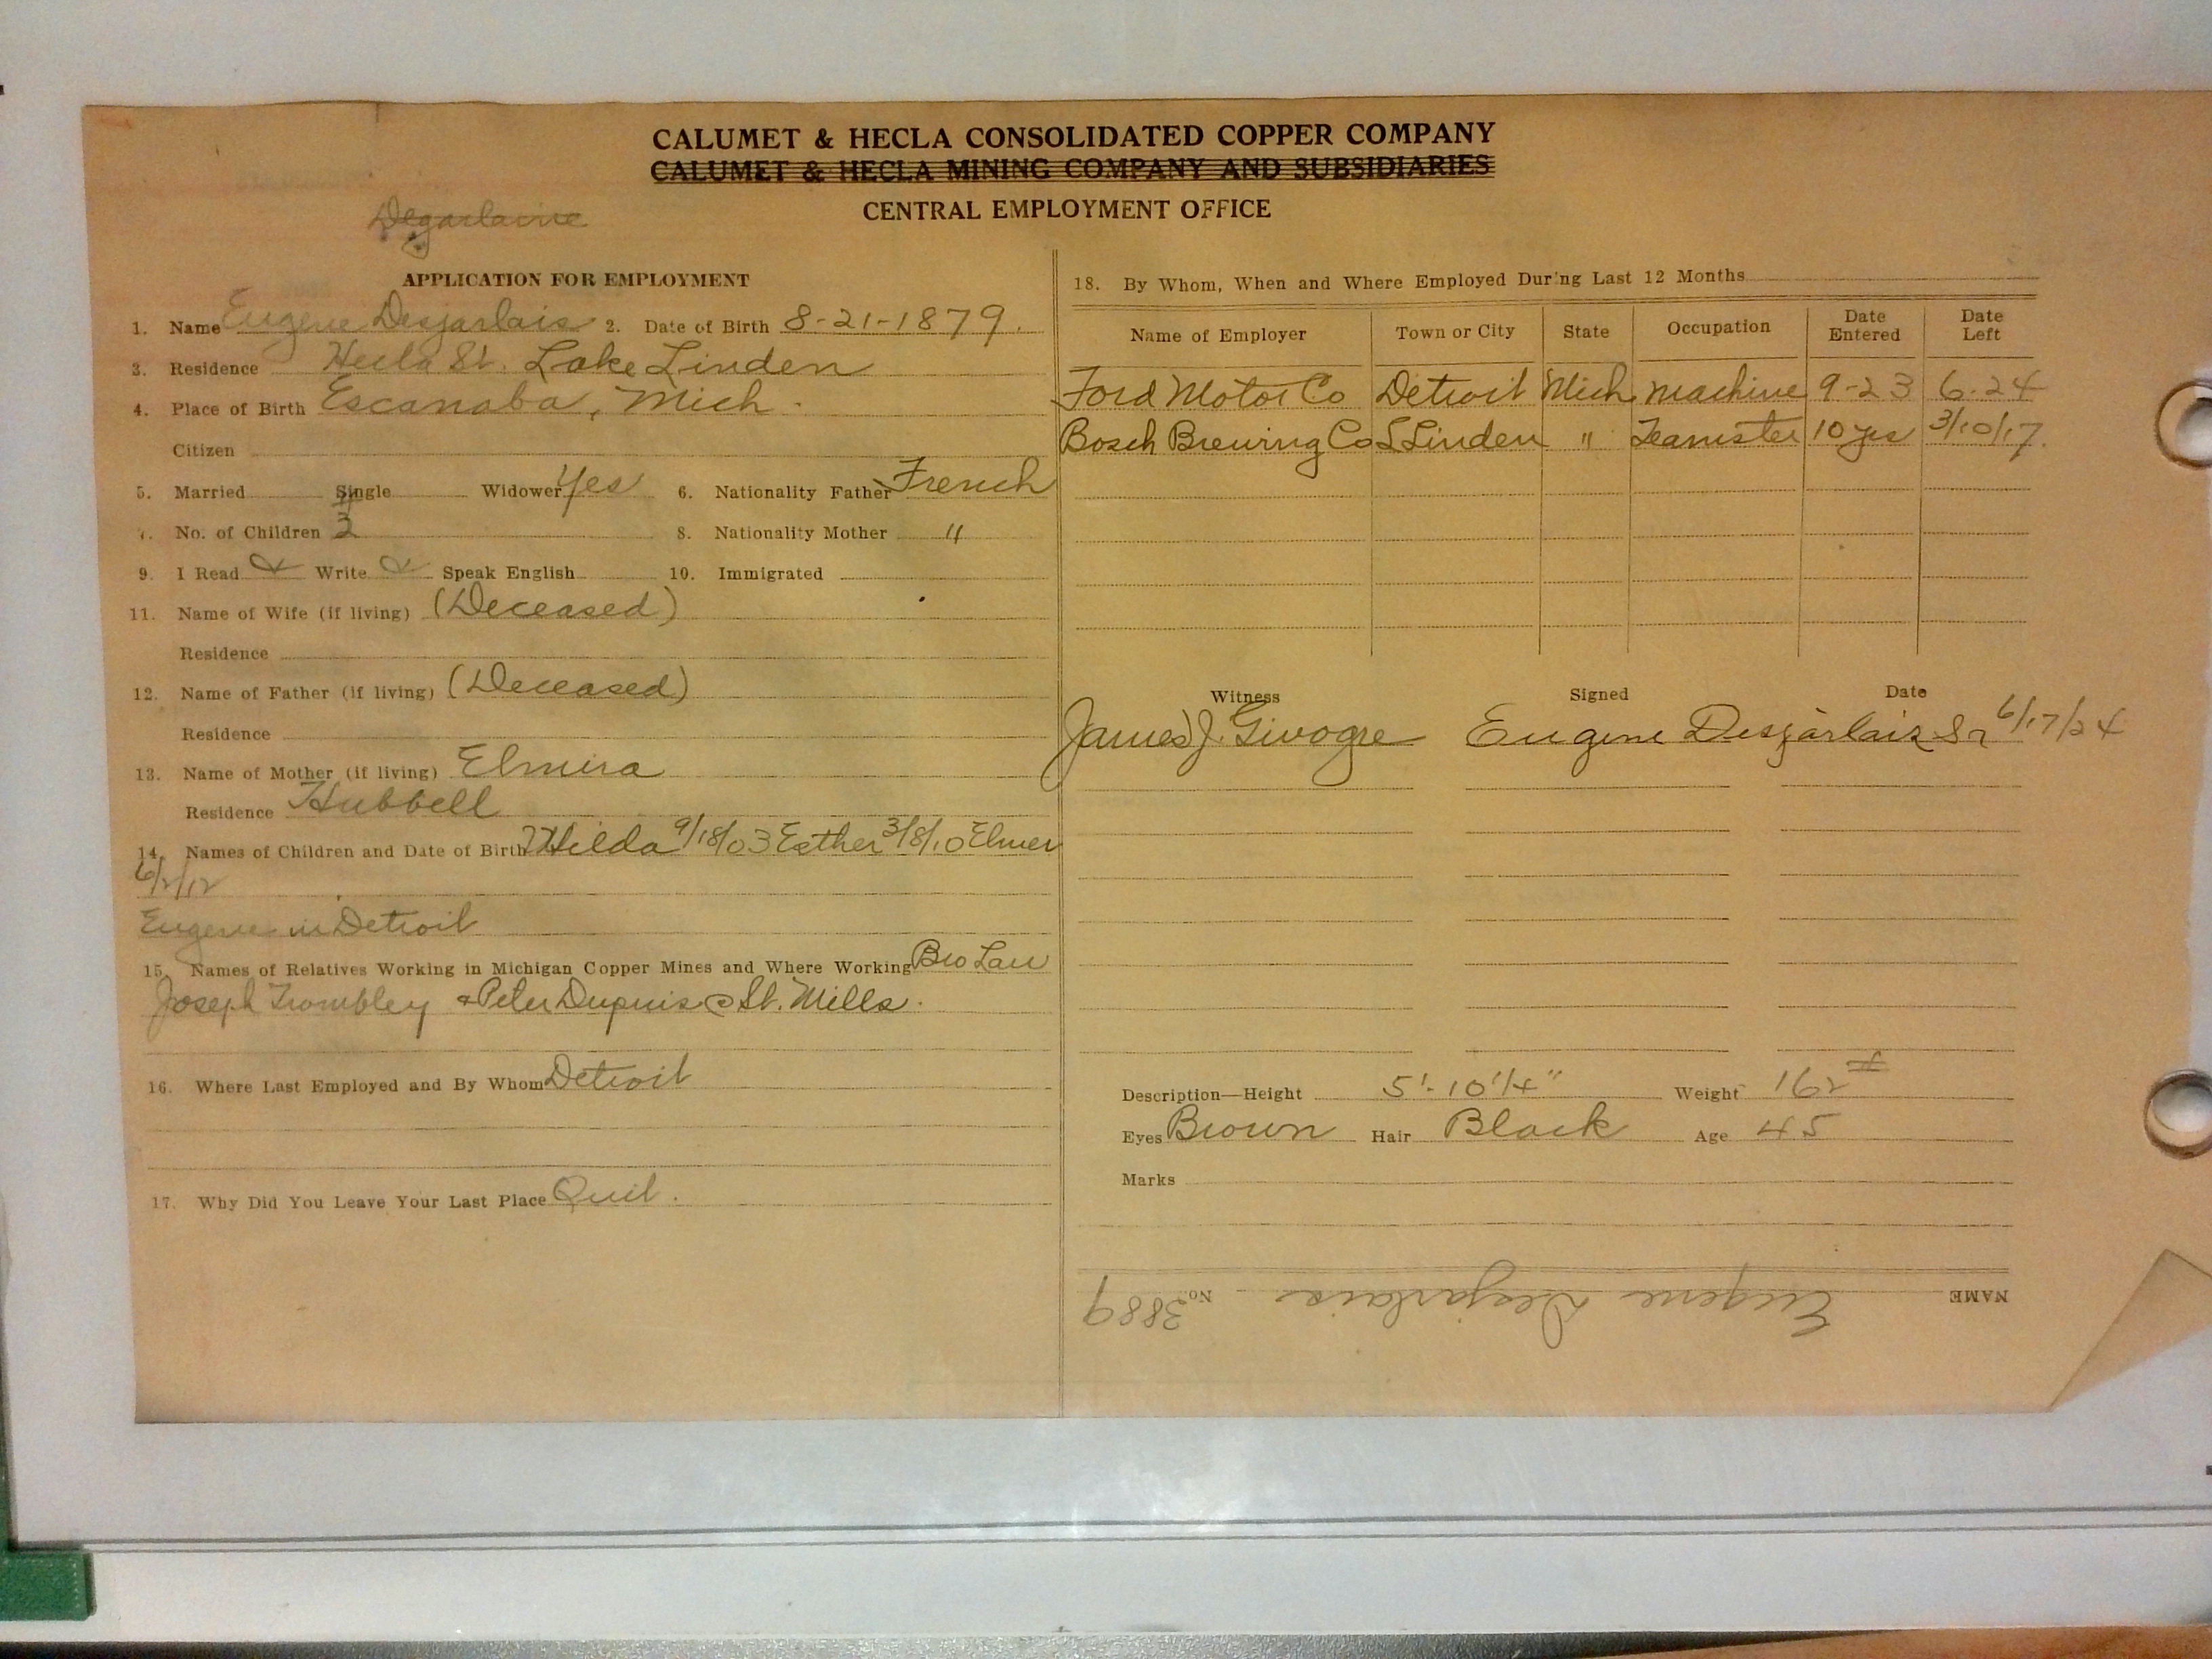 CALUMET & HECLA CONSOLIDATED COPPER COMPANY
CALUMET & HECLA MINING COMPANY AND SUBSIDIARIES
CENTRAL EMPLOYMENT OFFICE
APPLICATION FOR EMPLOYMENT
1. Name Eugene Desjarlais 2. Date of Birth 8-21-1879.
3. Residence Hecla St. Lake Linden
4. Place of Birth Escanaba, Mich.
Citizen
5. Married Single Widower Yes 6. Nationality Father French
7. No. of Children 3 8. Nationality Mother "
9. I Read Write Speak English 10. Immigrated
11. Name of Wife (if living) (Deceased)
Residence
12. Name of Father (if living) (Deceased)
Residence
13. Name of Mother (if living) Elmira
Residence Hubbell
14. Names of Children and Date of Birth Hilda 9/18/03 Esther 3/8/10 Elmer
6/2/12
Eugene in Detroit
15. Names of Relatives Working in Michigan Copper Mines and Where Working Bro Law
Joseph Trombley & Peter Dupuis @ St. Mills.
16. Where Last Employed and By Whom Detroit
17. Why Did You Leave Your Last Place Quit.
18. By Whom, When and Where Employed During Last 12 Months
Name of Employer Town or City State Occupation Date Entered Date Left
Ford Motor Co Detroit Mich Machine 9-23 6-24
Bosch Brewing Co L Linden " Teamster 10 yrs 3/10/17.
Witness Signed Date
James J. Givogre Eugene Desjarlais Sr 6/17/24
Description—Height 5'-10 1/4" Weight 162#
Eyes Brown Hair Black Age 45
Marks
NAME Eugene Desjarlais No. 3889